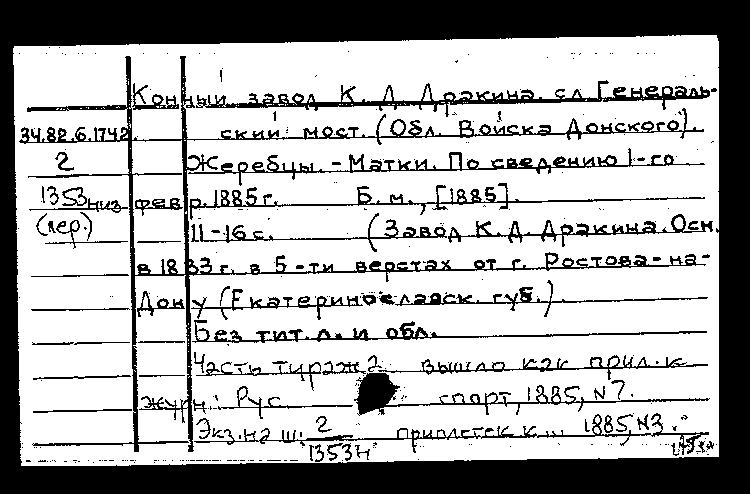 Конный завод К. Д. Дракина. сл. Генераль-
34.82.6.1742. ский мост. (Обл. Войска Донского).
2 Жеребцы. - Матки. По сведению 1-го
1353 низ февр. 1885 г. Б. м., [1885].
(пер.) 11-16 с. (Завод К. Д. Дракина. Осн.
в 1833 г. в 5-ти верстах от г. Ростова-на-
Дону (Екатеринославск. губ.).
Без тит. л. и обл.
Часть тиража вышло как прил. к
журн.: Рус. спорт, 1885, N 7.
Экз. на ш: 2 приплетен к... 1885, N3.
1353н